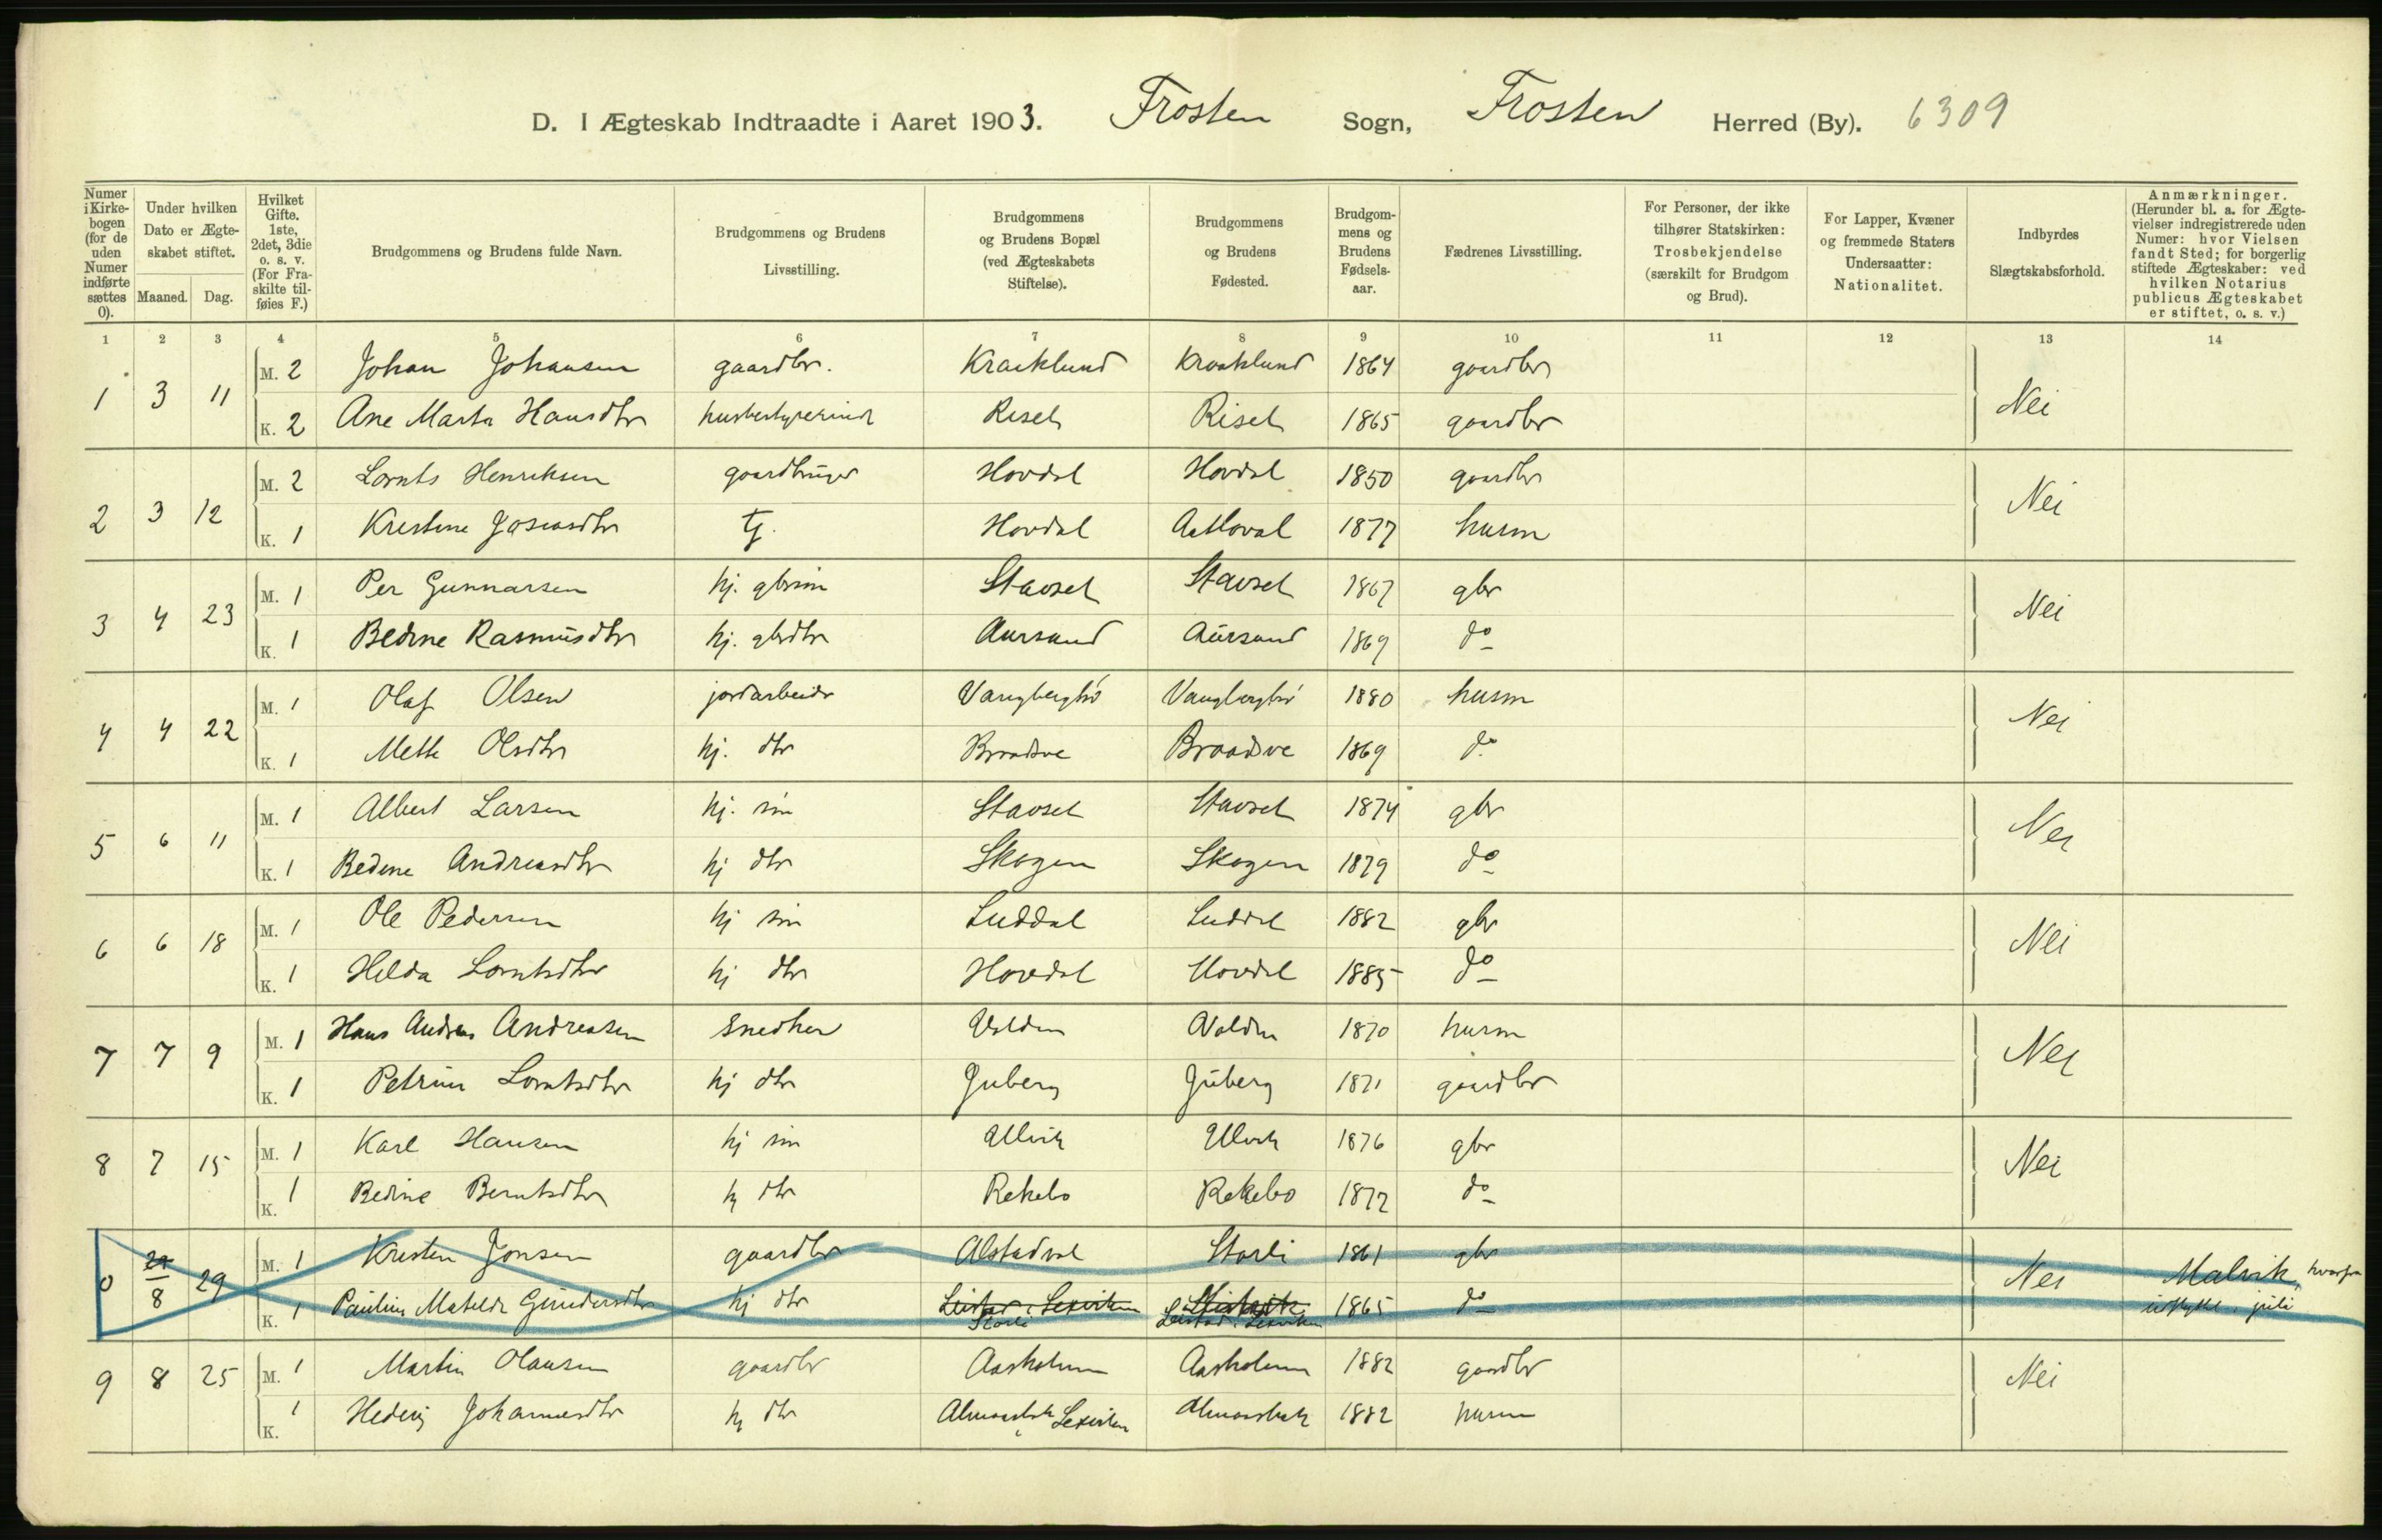 D. I Ægteskab Indtraadte i Aaret 1903. Frosten Sogn, Frosten Herred (By). 6309
Numer i Kirkebogen (for de uden Numer indførte sættes 0).
Under hvilken Dato er Ægteskabet stiftet.
Maaned. Dag.
Hvilket Gifte. 1ste, 2det, 3die o. s. v. (For Fraskilte tilføies F.)
Brudgommens og Brudens fulde Navn.
Brudgommens og Brudens Livsstilling.
Brudgommens og Brudens Bopæl (ved Ægteskabets Stiftelse).
Brudgommens og Brudens Fødested.
Brudgommens og Brudens Fødselsaar.
Fædrenes Livsstilling.
For Personer, der ikke tilhører Statskirken: Trosbekjendelse (særskilt for Brudgom og Brud).
For Lapper, Kvæner og fremmede Staters Undersaatter: Nationalitet.
Indbyrdes Slægtskabsforhold.
Anmærkninger. (Herunder bl. a. for Ægtevielser indregistrerede uden Numer: hvor Vielsen fandt Sted; for borgerlig stiftede Ægteskaber: ved hvilken Notarius publicus Ægteskabet er stiftet, o. s. v.)
1 2 3 4 5 6 7 8 9 10 11 12 13 14
1 3 11 M. 2 Johan Johansen gaardbr. Kraaklund Kraaklund 1864 gaardbr Nei
K. 2 Ane Marta Hansdtr husbestyrerinde Riseth Riseth 1865 gaardbr
2 3 12 M. 2 Lornts Henriksen gaardbruger Hovdal Hovdal 1850 gaardbr Nei
K. 1 Kristine Joseasdtr tj. Hovdal 1877 husm
3 4 23 M. 1 Per Gunnarsen hj. gbrsøn Stavset Stavset 1867 gbr Nei
K. 1 Bedine Rasmusdtr hj. gbrdtr Aursand Aursand 1869 do
4 4 22 M. 1 Olaf Olsen jordarbeider 1880 husm Nei
K. 1 Mette Olsdtr hj. dtr Braadsve Braadsve 1869 do
5 6 11 M. 1 Albert Larsen hj. søn Stavset Stavset 1874 gbr Nei
K. 1 Bedine Andreasdtr hj dtr Skogen Skogen 1879 do
6 6 18 M. 1 Ole Pedersen hj søn Luddal Luddal 1882 gbr Nei
K. 1 Hilda Lorntsdtr hj dtr Hovdal Hovdal 1885 do
7 7 9 M. 1 Hans Andreas Andreasen Snedker Valden Valden 1870 husm Nei
K. 1 Petrine Lorntsdtr hj dtr Juberg Juberg 1871 gaardbr
8 7 15 M. 1 Karl Hansen hj søn Ulvik Ulvik 1876 gbr Nei
K. 1 Bedine Berntsdtr hj dtr Rekebo Rekebo 1872 do
0 29 8 29 M. 1 Kristen Jonsen gaardbr Alstadval Storli 1861 gbr Nei Malvik, hvorfra
K. 1 Pauline Matelde Gundersdtr hj dtr Leistad i Lexviken 1865 do udflyttet i juli
Storli Leistad i Lexviken
9 8 25 M. 1 Martin Olausen gaardbr Aasholmen Aasholmen 1882 gaardbr Nei
K. 1 Hedevig Johannesdtr hj dtr Leksviken 1882 husm